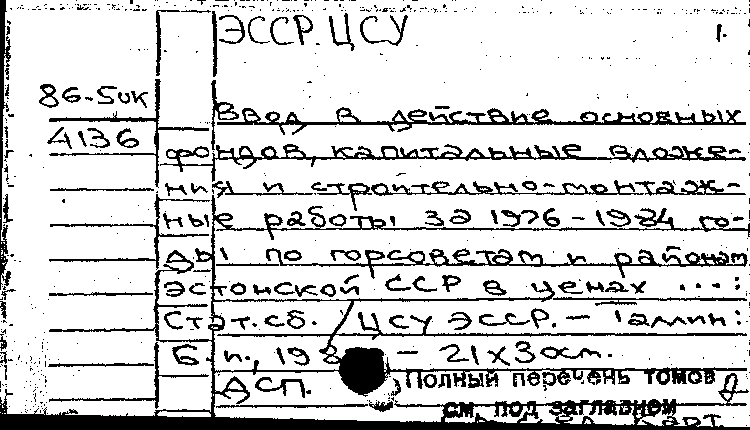 ЭССР. ЦСУ 1.
86-5ук
4136
Ввод в действие основных
фондов, капитальные вложе-
ния и строительно-монтаж-
ные работы за 1976-1984 го-
ды по горсоветам и районам
Эстонской ССР в ценах ...:
Стат. сб. / ЦСУ ЭССР. - Таллин:
Б. и., 198 - 21х30 см.
ДСП.
Полный перечень томов
см. под заглавием